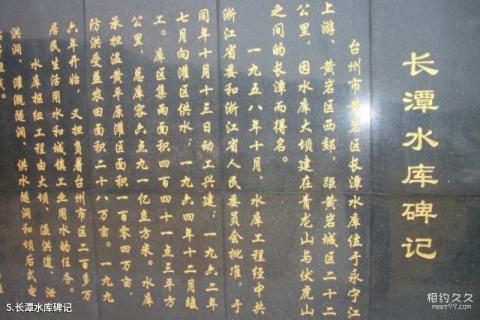 长潭水库碑记
台州市黄岩区长潭水库位于永宁江
上游、黄岩区西郊，距黄岩城区二十二
公里，因水库大坝建在青龙山与伏虎山
之间的长潭而得名。
一九五八年十月，水库工程经中共
浙江省委和浙江省人民委员会批准，于
同年十月十三日动工兴建；一九六二年
七月向灌区供水；一九六四年十二月竣
工。库区集雨面积四百四十一点三平方
公里，总库容六点九一亿立方米。水库
承担温黄平原灌区面积一百零四万亩，
防洪受益农田面积二十八万亩。一九九
六年开始，又担负着台州市区二百多万
居民生活用水和城镇工业用水的任务。
水库枢纽工程由大坝、溢洪道、泄
洪洞、灌溉隧洞、供水隧洞和坝后式电
5.长潭水库碑记
相约久久
meet99.com